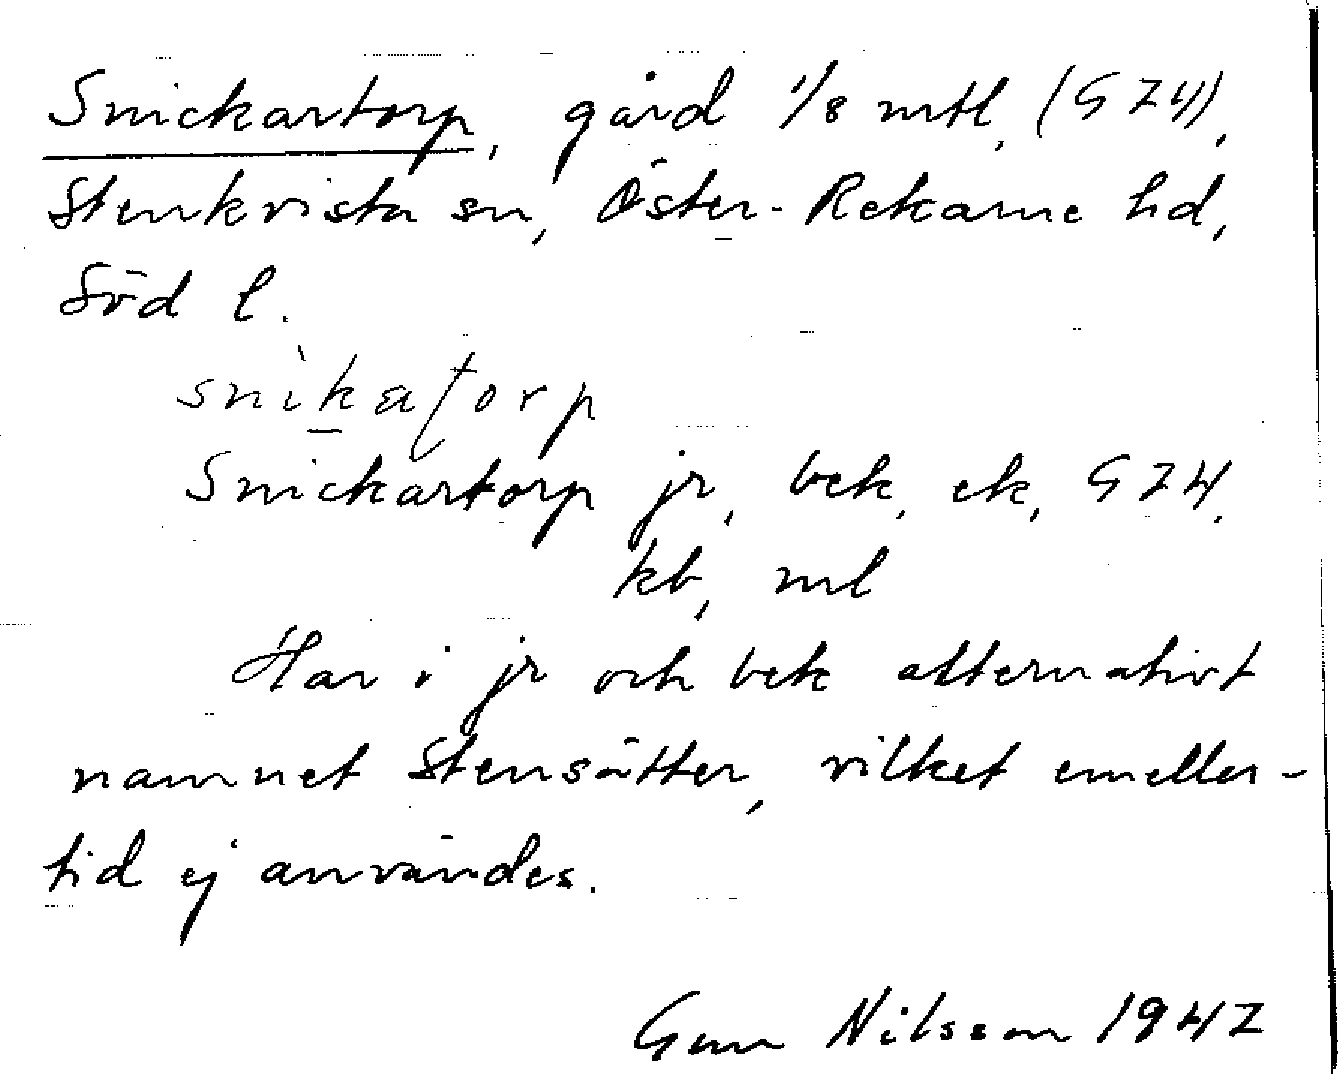 Snickartorp, gård 1/8 mtl, (G 24),
Stenkvista sn, Öster-Rekarne hd,
Söd l.
snìkatorp
Snickartorp jr, bek, ek, G 24,
kb, ml
Har i jr och bek alternativt
namnet Stensätter, vilket emeller-
tid ej användes.
Gun Nilsson 1942